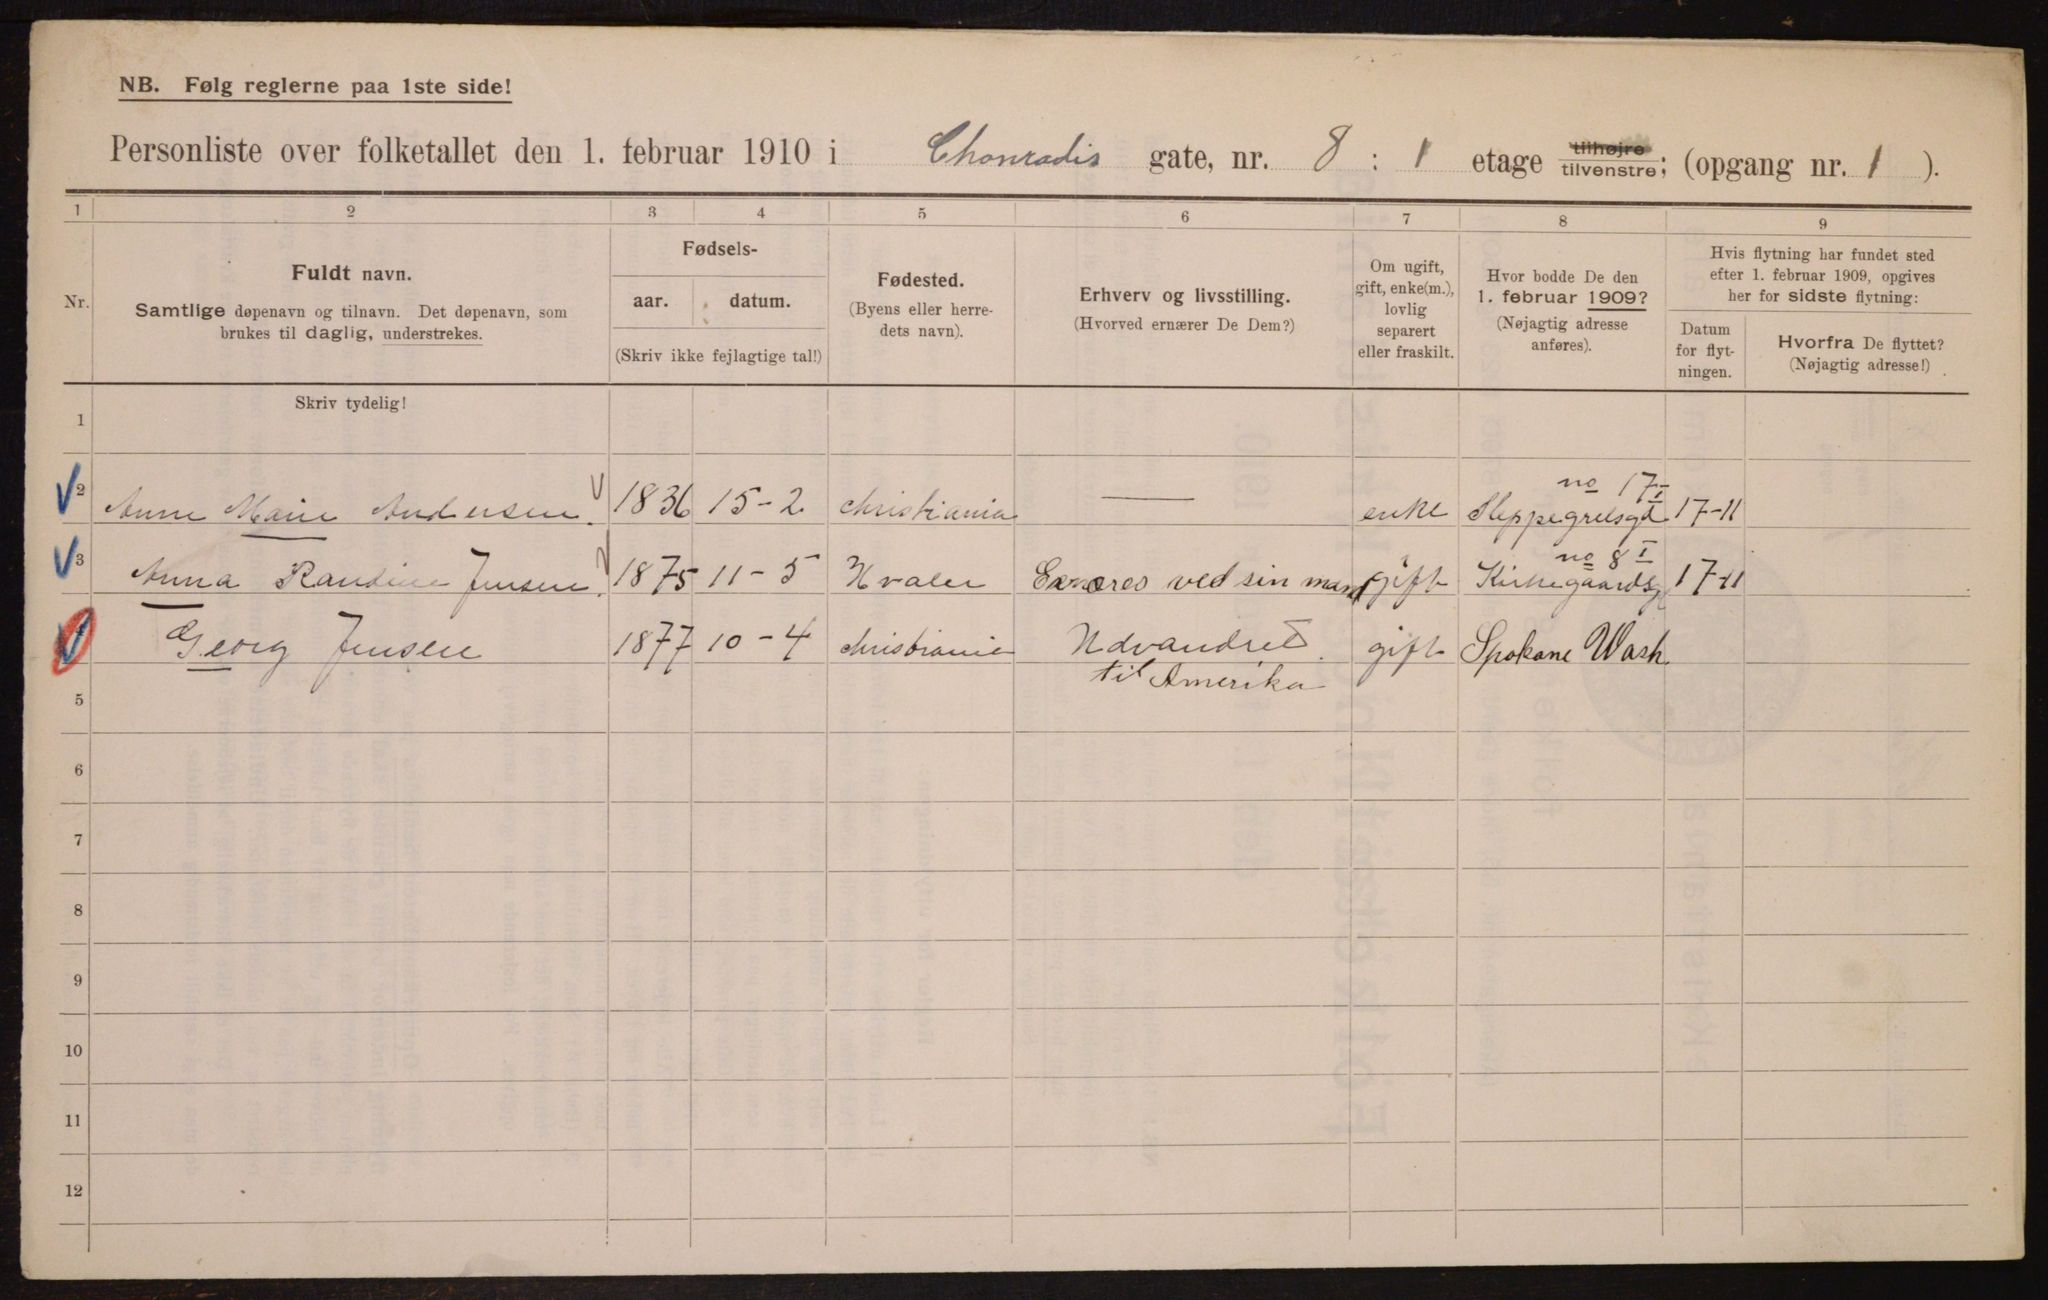 NB. Følg reglerne paa 1ste side!
Personliste over folketallet den 1. februar 1910 i Chonradis gate, nr. 8 : 1 etage tilhøjre tilvenstre; (opgang nr. 1 ).
1 2 3 4 5 6 7 8 9
Nr.
Fuldt navn.
Samtlige døpenavn og tilnavn. Det døpenavn, som
brukes til daglig, understrekes.
Fødsels-
aar. datum.
(Skriv ikke fejlagtige tal!)
Fødested.
(Byens eller herre-
dets navn).
Erhverv og livsstilling.
(Hvorved ernærer De Dem?)
Om ugift,
gift, enke(m.),
lovlig
separert
eller fraskilt.
Hvor bodde De den
1. februar 1909?
(Nøjagtig adresse
anføres).
Hvis flytning har fundet sted
efter 1. februar 1909, opgives
her for sidste flytning:
Datum
for flyt-
ningen.
Hvorfra De flyttet?
(Nøjagtig adresse!)
Skriv tydelig!
1
no 17 I
2 Anne Marie Andersen 1836 15-2 Christiania — enke Sleppegrelsgd 17-11
no 8 I
3 Anna Randine Jensen 1875 11-5 Hvaler Ernæres ved sin mand gift Kirkegaardsg 17-11
Georg Jensen 1877 10-4 Christiania Udvandret gift Spokane Wash.
til Amerika
5
6
7
8
9
10
11
12